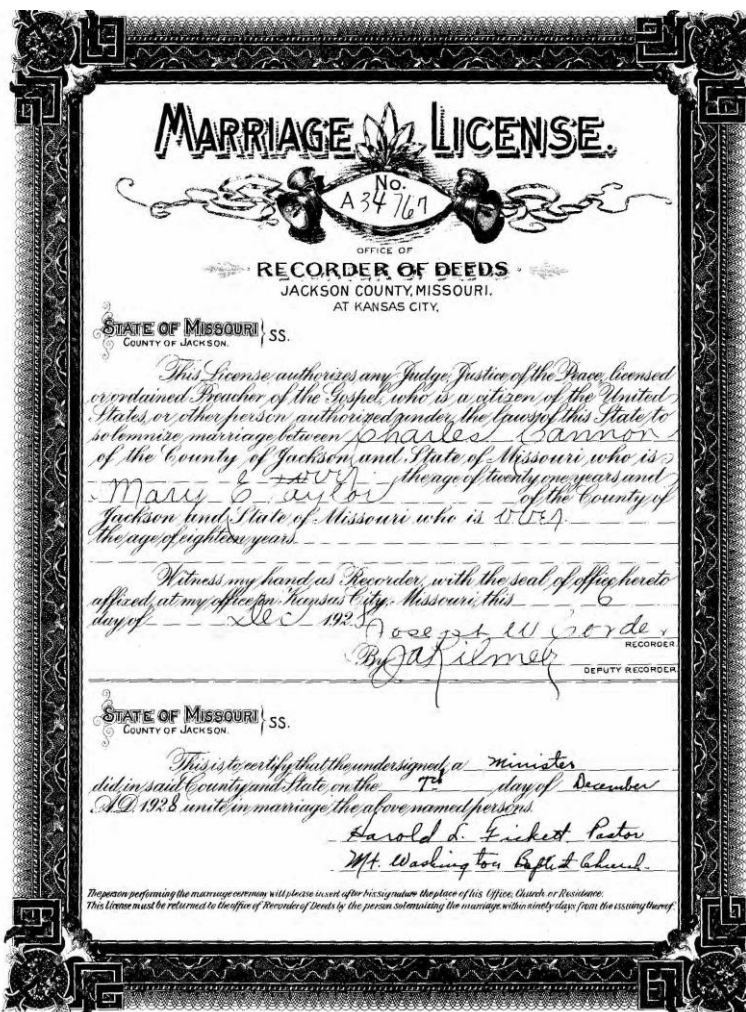 MARRIAGE LICENSE.
No.
A 34767
OFFICE OF
RECORDER OF DEEDS
JACKSON COUNTY, MISSOURI.
AT KANSAS CITY,
STATE OF MISSOURI } SS.
COUNTY OF JACKSON.
This License authorizes any Judge, Justice of the Peace, licensed
or ordained Preacher of the Gospel, who is a citizen of the United
States, or other person authorized under the laws of this State to
solemnize marriage between Charles Cannon
of the County of Jackson and State of Missouri, who is
over the age of twenty one years and
Mary E Taylor of the County of
Jackson and State of Missouri who is over
the age of eighteen years
Witness my hand as Recorder, with the seal of office hereto
affixed, at my office in Kansas City, Missouri, this 6
day of Dec 1928
Joseph W Corder
RECORDER.
By J A Kilmer
DEPUTY RECORDER.
STATE OF MISSOURI } SS.
COUNTY OF JACKSON.
This is to certify that the undersigned, a Minister
did, in said County and State on the 7th day of December
A.D. 1928 unite in marriage the above named persons.
Harold L. Fickett Pastor
Mt. Washington Baptist Church.
The person performing the marriage ceremony will please insert after his signature the place of his Office, Church or Residence.
This License must be returned to the office of Recorder of Deeds by the person solemnizing the marriage, within ninety days from the issuing thereof.